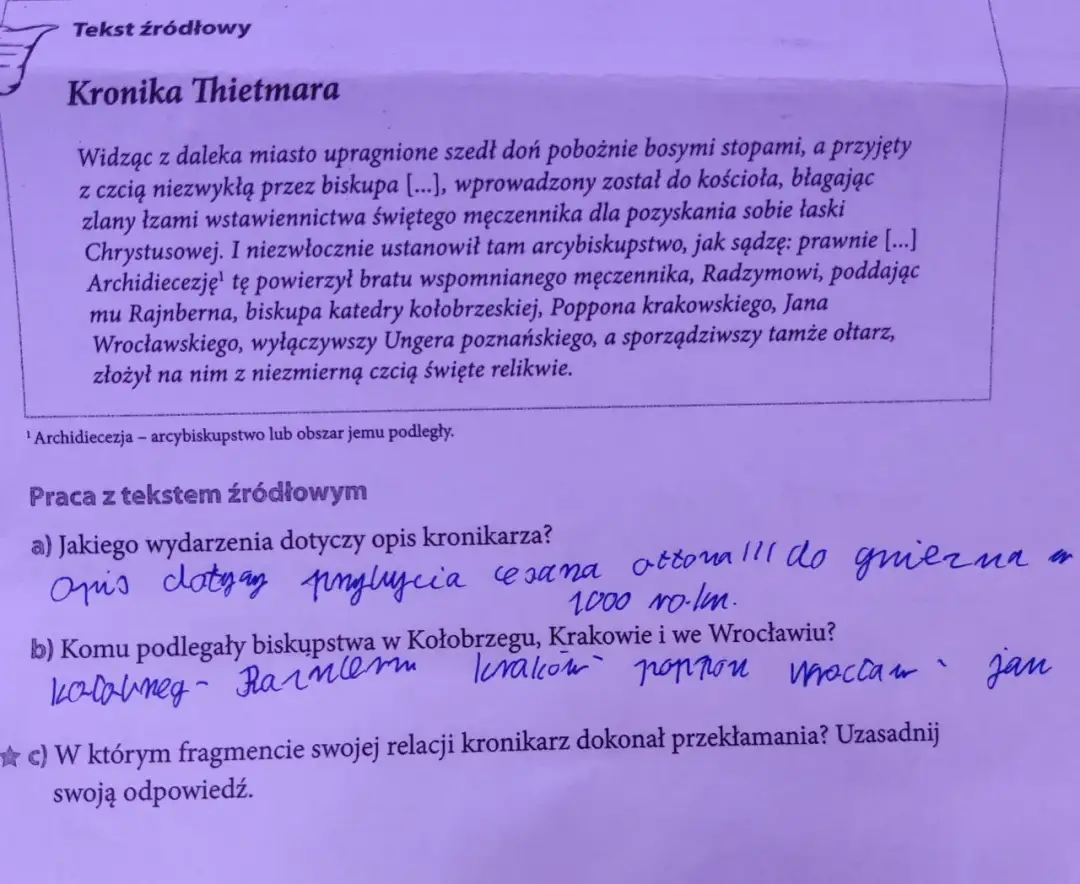 Tekst źródłowy
Kronika Thietmara
Widząc z daleka miasto upragnione szedł doń pobożnie bosymi stopami, a przyjęty
z czcią niezwykłą przez biskupa [...], wprowadzony został do kościoła, błagając
zlany łzami wstawiennictwa świętego męczennika dla pozyskania sobie łaski
Chrystusowej. I niezwłocznie ustanowił tam arcybiskupstwo, jak sądzę: prawnie [...]
Archidiecezję¹ tę powierzył bratu wspomnianego męczennika, Radzymowi, poddając
mu Rajnberna, biskupa katedry kołobrzeskiej, Poppona krakowskiego, Jana
Wrocławskiego, wyłączywszy Ungera poznańskiego, a sporządziwszy tamże ołtarz,
złożył na nim z niezmierną czcią święte relikwie.
¹ Archidiecezja – arcybiskupstwo lub obszar jemu podległy.
Praca z tekstem źródłowym
a) Jakiego wydarzenia dotyczy opis kronikarza?
Opis dotyczy przybycia cesarza ottona III do gniezna w
1000 ro.
b) Komu podlegały biskupstwa w Kołobrzegu, Krakowie i we Wrocławiu?
kołobrzeg - kraków - poppon wrocław - jan
c) W którym fragmencie swojej relacji kronikarz dokonał przekłamania? Uzasadnij
swoją odpowiedź.